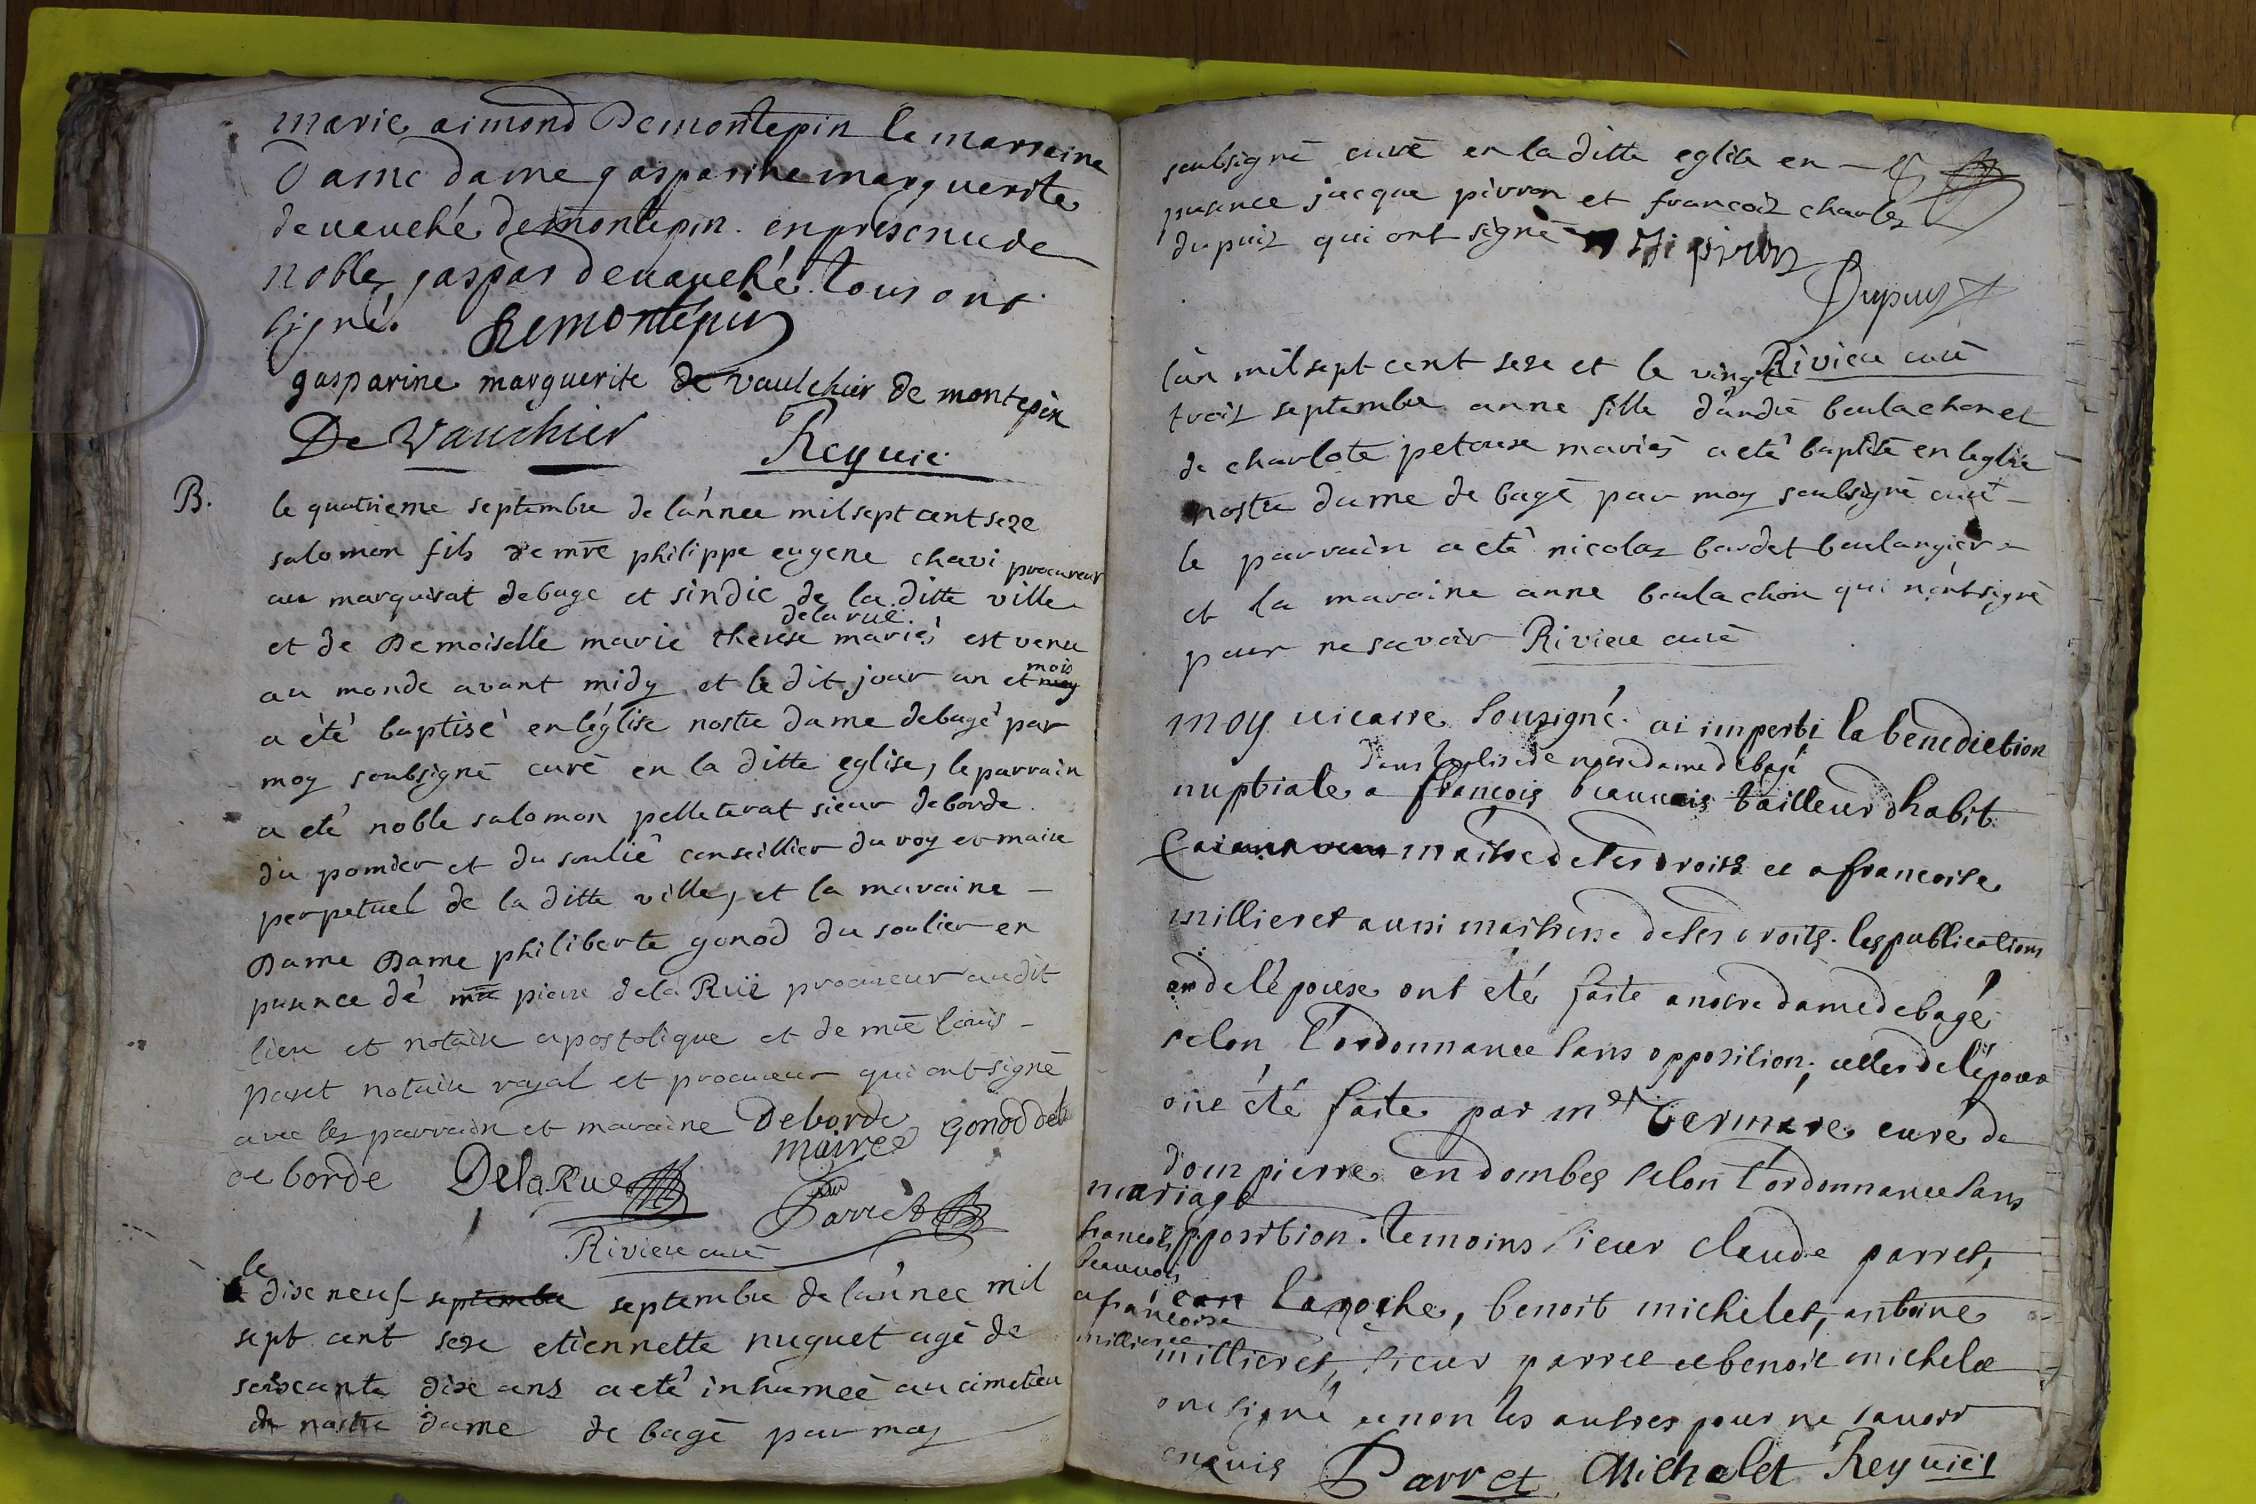 marie aimond Demontepin la marraine
Dame dame gasparine marguerite
devauché demontepin. en presence de
noble gaspar devauché. tous ont
signé. Demontepin
gasparine marguerite de vaulchier de montepin
De Vauchier Reguié
B.
le quatrieme septembre de lánnee mil sept cent seze
salomon fils de mre philippe eugene chavi procureur
au marquisat de bagé et sindic de la ditte ville
delarue.
et de Demoiselle marie therese mariés est venu
mois
au monde avant midy et le dit jour an et moy
a été baptisé en léglise nostre dame de bagé par
moy soubsigné curé en la ditte eglise, le parrain
a eté noble salomon pelleterat sieur deborde
du pomier et du soulié conseillier du roy et maire
perpetuel de la ditte ville, et la maraine
Dame Dame philiberte gonod du soulier en
presence de mre piere dela Rüe procureur audit
lieu et notaire apostolique et de mre louis
paret notaire royal et procureur qui ont signé
avec les parrain et maraine Deborde
maire gonod
de borde DelaRue Parret
Riviere curé
le
dixneuf septembre septembre de lánnee mil
sept cent seze etiennette nuguet agé de
soixante dix ans a eté inhumeé au cimetiere
de nostre dame de bagé par moy
soubsigné curé en la ditte eglise en
presence jacque pirron et francois charles
dupuis qui ont signé piron
Dupuy
Riviere curé
lán mil sept cent seze et le vingt
trois septembre anne fille dándré boulachon et
de charlote petouse mariés a eté baptisée en leglise
nostre dame de bagé par moy soubsigné curé
le parrain a eté nicolas bardet boulangier
et la maraine anne boulachon qui nónt signé
pour ne savoir Riviere curé
moy vicaire sousigné ai imperti la benediction
dans leglise de notre dame de bagé
nuptiale a françois beauvais tailleur dhabit
maitre de ses droits et a francoise
millieret aussi maitresse de ses droits. les publications
de lépouse ont eté faite a notre dame de bagé
selon lórdonnance sans opposition; celles de lépoux
ont été faite par mr curé de
dompierre en dombes selon lórdonnance sans
opposition. temoins sieur claude parret,
mariage
francois
beauvois
a francoise
millieret
jean laroche, benoit michelet, antoine
millieret, sieur parret et benoit michelet
ont signé et non les autres pour ne savoir
enquis Parret Michelet Reguiés